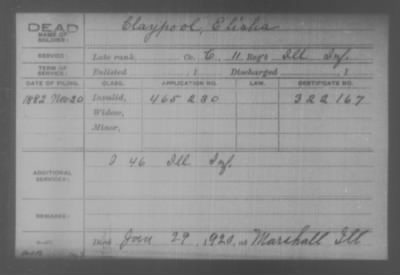 DEAD
NAME OF SOLDIER: Claypool, Elisha
SERVICE: Late rank, Co. C, 11 Reg't Ill Inf.
TERM OF SERVICE: Enlisted , 1 Discharged , 1
DATE OF FILING. CLASS. APPLICATION NO. LAW. CERTIFICATE NO.
1882 Nov 20 Invalid, 465 280 322 167
Widow,
Minor,
ADDITIONAL SERVICES: I 46 Ill Inf.
REMARKS:
Died 29, 1920, at Marshall Ill